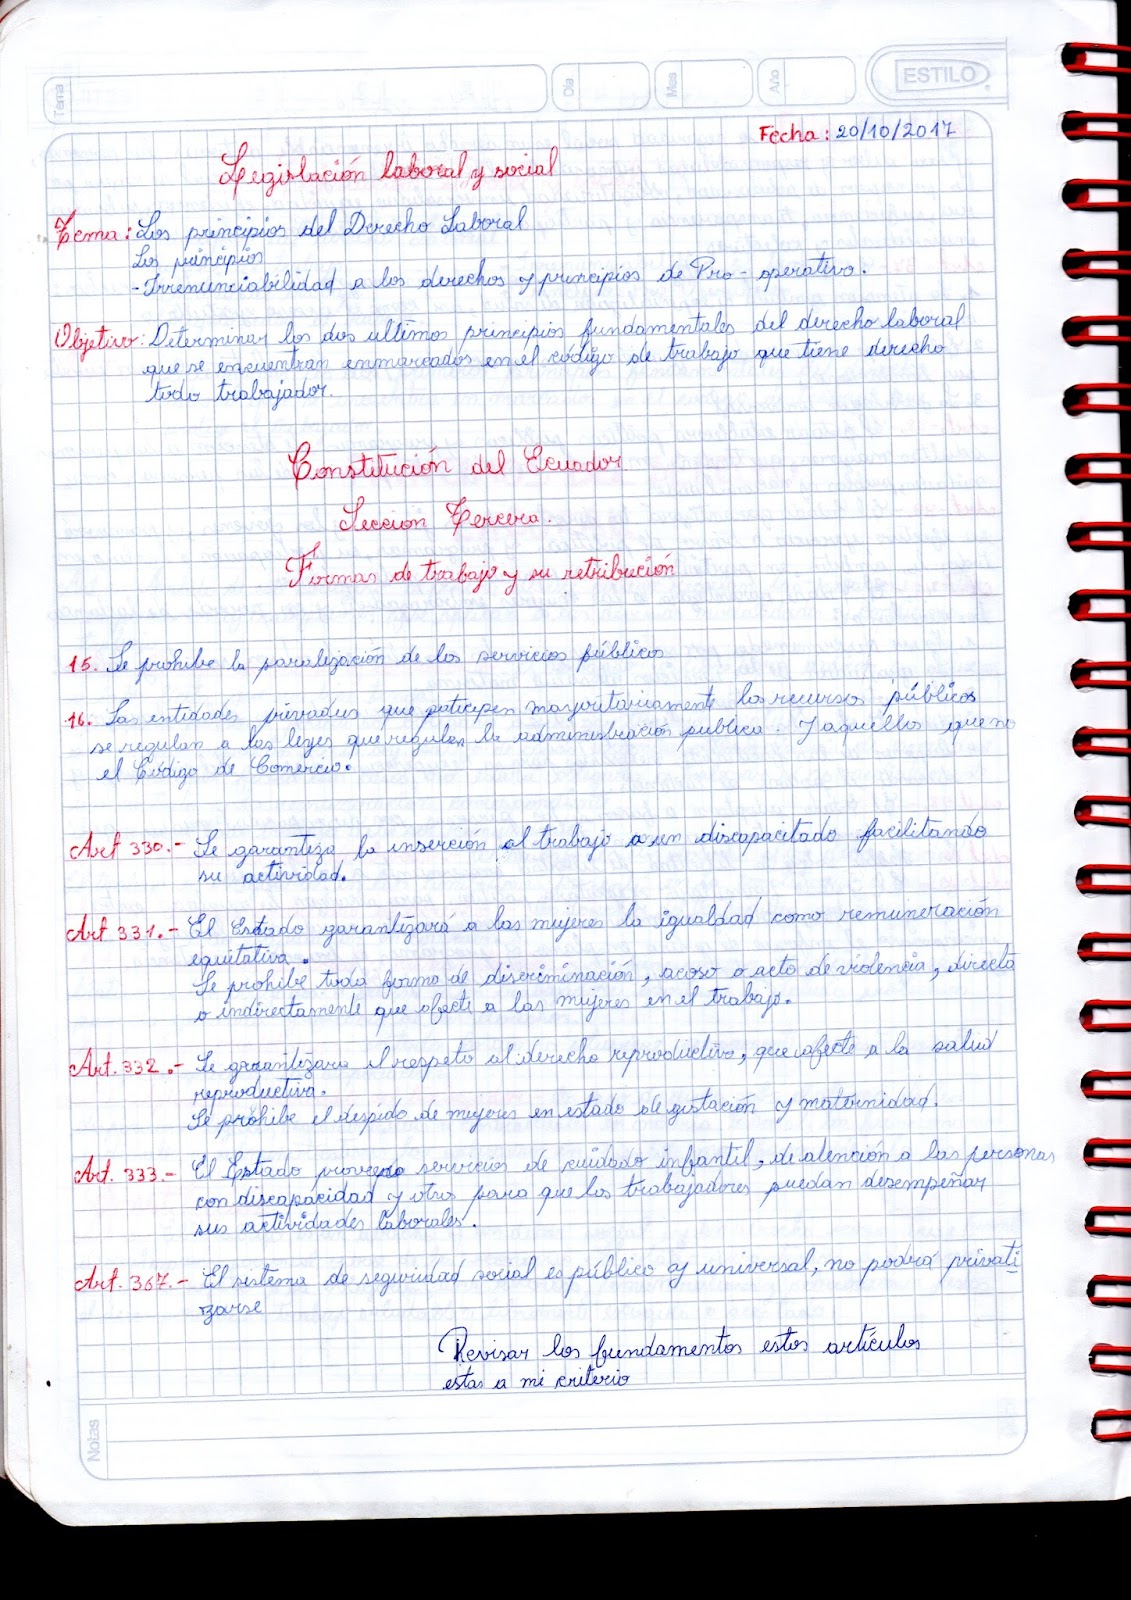 Tema
Día
Mes
Año
ESTILO
Fecha: 20/10/2017
Legislación laboral y social
Tema: Los principios del Derecho Laboral
Los principios
- Irrenunciabilidad a los derechos y principios de Pro-operativo.
Objetivo: Determinar los dos ultimos principios fundamentales del derecho laboral
que se encuentran enmarcados en el código de trabajo que tiene derecho
todo trabajador.
Constitución del Ecuador
Sección Tercera.
Formas de trabajo y su retribución
15. Se prohibe la paralización de los servicios públicos
16. Las entidades privadas que paticepen mayoritariamente los recursos públicos
se regulan a las leyes que regulan la administración publica. Y aquellos que no
el Código de Comercio.
Art 330.- Se garantiza la inserción al trabajo a un discapacitado facilitando
su actividad.
Art 331.- El Estado garantizará a las mujeres la igualdad como remuneración
equitativa.
Se prohibe toda forma de discriminación, acoso o acto de violencia, directa
o indirectamente que afecte a las mujeres en el trabajo.
Art. 332.- Se garantizara el respeto al derecho reproductivo, que afecte a la salud
reproductiva.
Se prohibe el despido de mujeres en estado de gestación y maternidad.
Art. 333.- El Estado servicios de cuidado infantil, de atención a las personas
con discapacidad y otros para que los trabajadores puedan desempeñar
sus actividades laborales.
Art. 367.- El sistema de seguridad social es público y universal, no podrá privati
zarse
Revisar los fundamentos estos artículos
estas a mi criterio
Notas